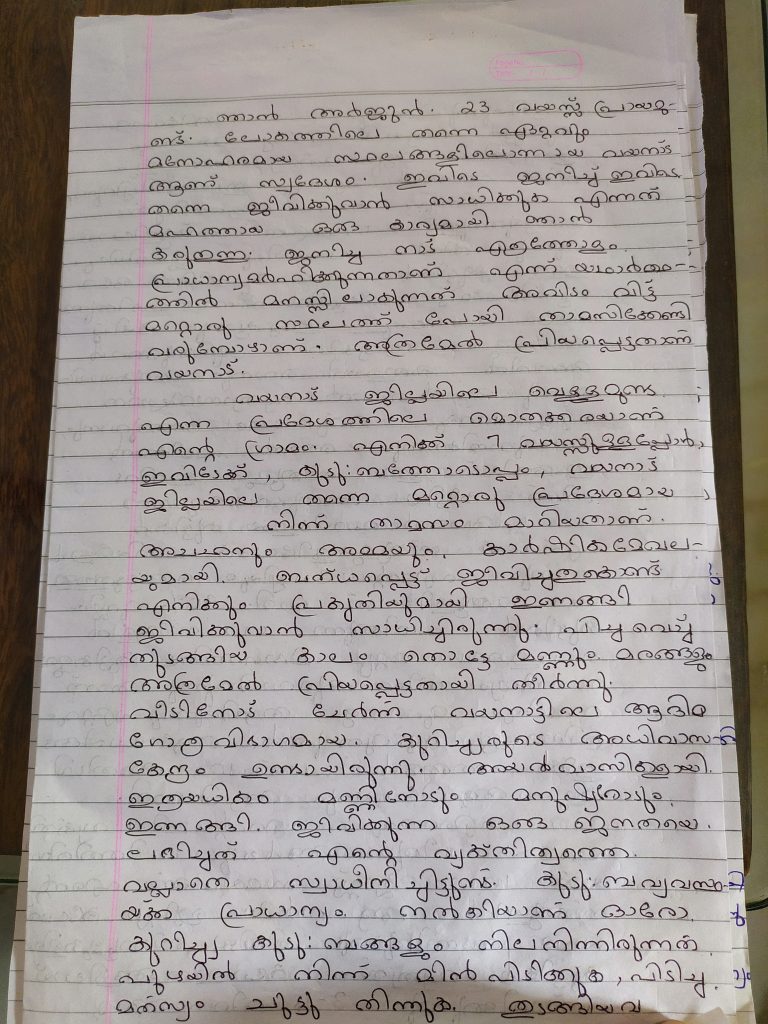 ഞാൻ അർജുൻ. 23 വയസ്സ് പ്രായമു-
ണ്ട്. ലോകത്തിലെ തന്നെ ഏറ്റവും
മനോഹരമായ സ്ഥലങ്ങളിലൊന്നായ വയനാട്
ആണ് സ്വദേശം. ഇവിടെ ജനിച്ച് ഇവിടെ
തന്നെ ജീവിക്കുവാൻ സാധിക്കുക എന്നത്
മഹത്തായ ഒരു കാര്യമായി ഞാൻ
കരുതുന്നു. ജനിച്ച നാട് എത്രത്തോളം
പ്രാധാന്യമർഹിക്കുന്നതാണ് എന്ന് യഥാർത്ഥ-
ത്തിൽ മനസ്സിലാകുന്നത് അവിടം വിട്ട്
മറ്റൊരു സ്ഥലത്ത് പോയി താമസിക്കേണ്ടി
വരുമ്പോഴാണ്. അത്രമേൽ പ്രിയപ്പെട്ടതാണ്
വയനാട്.
വയനാട് ജില്ലയിലെ വെള്ളമുണ്ട
എന്ന പ്രദേശത്തിലെ മൊതക്കരയാണ്
എന്റെ ഗ്രാമം. എനിക്ക് 7 വയസ്സുള്ളപ്പോൾ,
ഇവിടേക്ക്, കുടുംബത്തോടൊപ്പം, വയനാട്
ജില്ലയിലെ തന്നെ മറ്റൊരു പ്രദേശമായ
നിന്ന് താമസം മാറിയതാണ്.
അച്ഛനും അമ്മയും കാർഷികമേഖല-
യുമായി ബന്ധപ്പെട്ട് ജീവിച്ചതുകൊണ്ട്
എനിക്കും പ്രകൃതിയുമായി ഇണങ്ങി
ജീവിക്കുവാൻ സാധിച്ചിരുന്നു. പിച്ച വെച്ച്
തുടങ്ങിയ കാലം തൊട്ടേ മണ്ണും മരങ്ങളും
അത്രമേൽ പ്രിയപ്പെട്ടതായി തീർന്നു.
വീടിനോട് ചേർന്ന് വയനാട്ടിലെ ആദിമ
ഗോത്രവിഭാഗമായ കുറിച്ച്യരുടെ അധിവാസ
കേന്ദ്രം ഉണ്ടായിരുന്നു. അയൽവാസികളായി
ഇത്രയധികം മണ്ണിനോടും മനുഷ്യരോടും
ഇണങ്ങി ജീവിക്കുന്ന ഒരു ജനതയെ
ലഭിച്ചത് എന്റെ വ്യക്തിത്വത്തെ
വല്ലാതെ സ്വാധീനിച്ചിട്ടുണ്ട്. കുടുംബവ്യവസ്ഥ-
യ്ക്ക് പ്രാധാന്യം നൽകിയാണ് ഓരോ
കുറിച്ച്യ കുടുംബങ്ങളും നിലനിന്നിരുന്നത്.
പുഴയിൽ നിന്ന് മീൻ പിടിക്കുക, പിടിച്ച
മത്സ്യം ചുട്ടു തിന്നുക തുടങ്ങിയവ